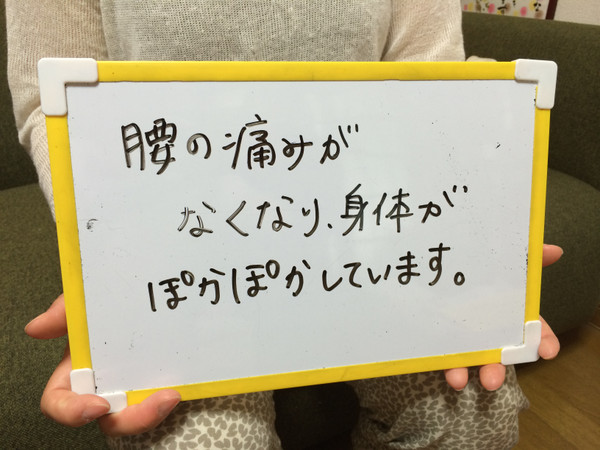 腰の痛みが
なくなり、身体が
ぽかぽかしています。